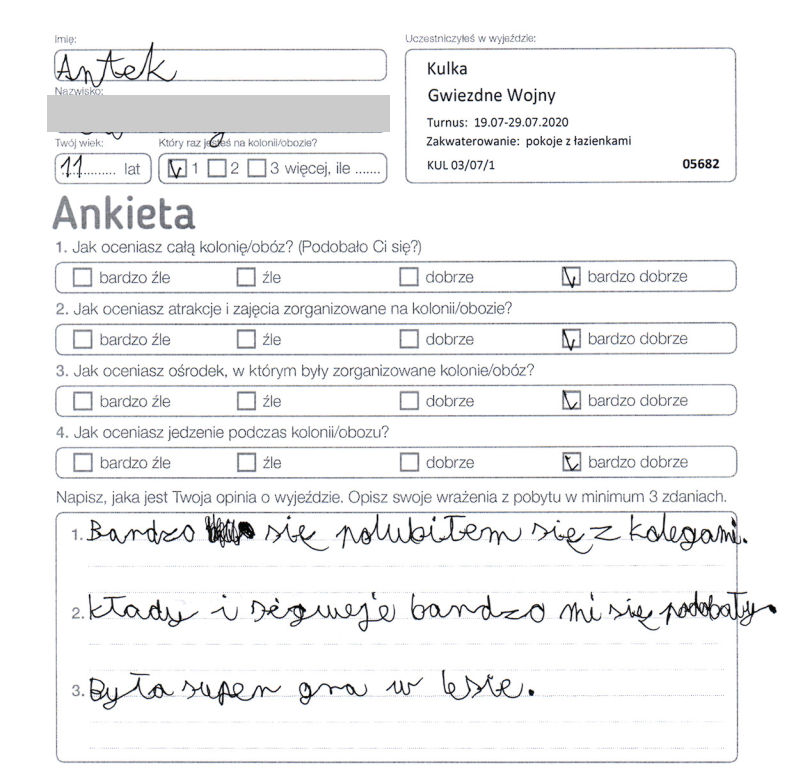 Imię:
Antek
Nazwisko:
Twój wiek:
11 lat
Który raz jesteś na kolonii/obozie?
1 2 3 więcej, ile .......
Uczestniczyłeś w wyjeździe:
Kulka
Gwiezdne Wojny
Turnus: 19.07-29.07.2020
Zakwaterowanie: pokoje z łazienkami
KUL 03/07/1 05682
Ankieta
1. Jak oceniasz całą kolonię/obóz? (Podobało Ci się?)
bardzo źle źle dobrze bardzo dobrze
2. Jak oceniasz atrakcje i zajęcia zorganizowane na kolonii/obozie?
bardzo źle źle dobrze bardzo dobrze
3. Jak oceniasz ośrodek, w którym były zorganizowane kolonie/obóz?
bardzo źle źle dobrze bardzo dobrze
4. Jak oceniasz jedzenie podczas kolonii/obozu?
bardzo źle źle dobrze bardzo dobrze
Napisz, jaka jest Twoja opinia o wyjeździe. Opisz swoje wrażenia z pobytu w minimum 3 zdaniach.
1. Bardzo się polubiłem się z kolegami.
2. Kłady i segweje bardzo mi się podobały.
3. Była super gra w lesie.